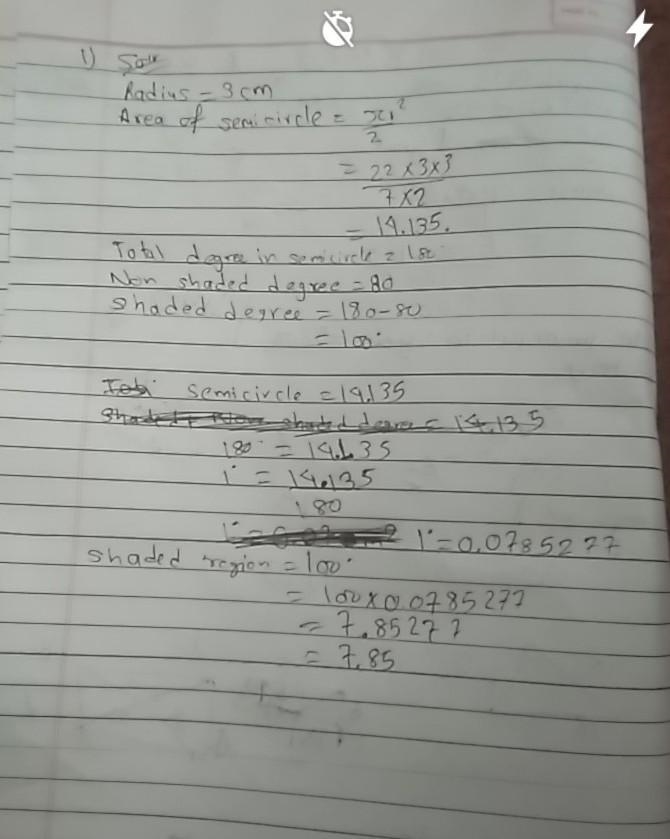 1) Soln
Radius = 3cm
Area of semicircle = πr²/2
= 22×3×3/7×2
= 14.135.
Total degree in semicircle = 180
Non shaded degree = 80
Shaded degree = 180-80
= 100°
semicircle = 14.135
Shaded shaded degree = 14.135
180° = 14.135
1° = 14.135/180
1° = 0.0785277
Shaded region = 100°
= 100×0.0785277
= 7.85277
= 7.85